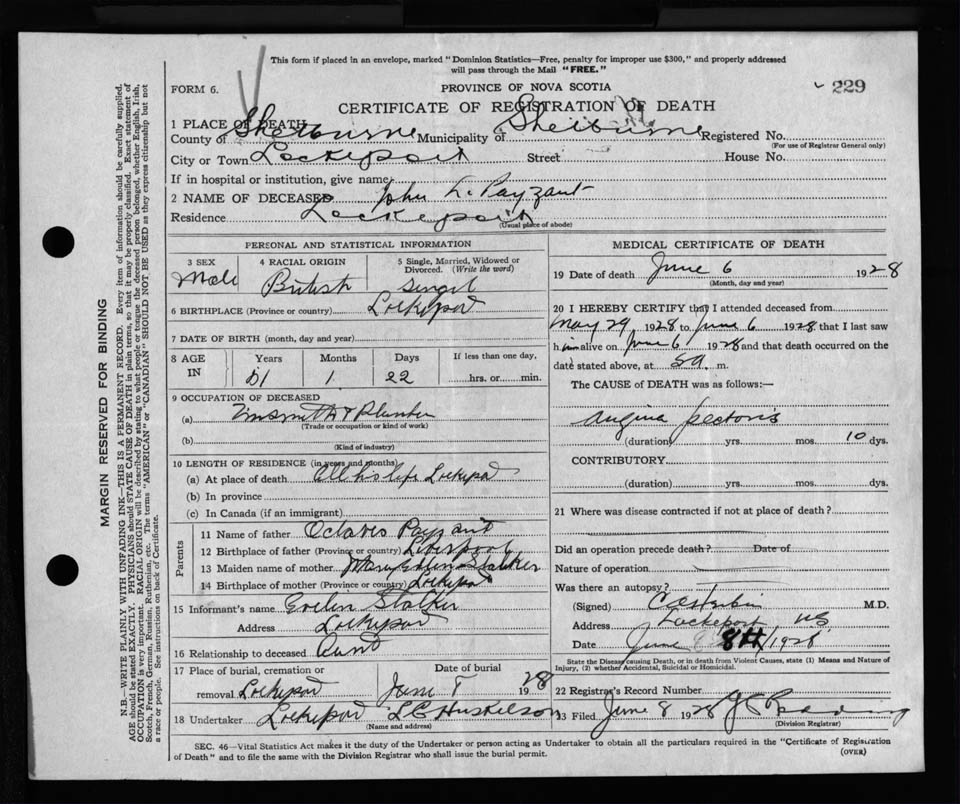 This form if placed in an envelope, marked "Dominion Statistics—Free, penalty for improper use $300," and properly addressed
will pass through the Mail "FREE."
FORM 6.
PROVINCE OF NOVA SCOTIA
229
CERTIFICATE OF REGISTRATION OF DEATH
1 PLACE OF DEATH
County of Shelburne Municipality of Shelburne Registered No.
(For use of Registrar General only)
City or Town Lockeport Street House No.
If in hospital or institution, give name
2 NAME OF DECEASED John L. Payzant
Residence Lockeport
(Usual place of abode)
PERSONAL AND STATISTICAL INFORMATION
3 SEX
Male
4 RACIAL ORIGIN
British
5 Single, Married, Widowed or
Divorced. (Write the word)
Singl
6 BIRTHPLACE (Province or country) Lockeport
7 DATE OF BIRTH (month, day and year)
8 AGE
IN
Years
Months
1
Days
22
If less than one day,
hrs. or min.
9 OCCUPATION OF DECEASED
(a) Tinsmith & Plumber
(Trade or occupation or kind of work)
(b)
(Kind of industry)
10 LENGTH OF RESIDENCE (in years and months)
(a) At place of death All his life Lockeport
(b) In province
(c) In Canada (if an immigrant)
Parents
11 Name of father Payzant
12 Birthplace of father (Province or country) Liverpool
13 Maiden name of mother Mary Stalker
14 Birthplace of mother (Province or country) Lockeport
15 Informant's name Evelin Stalker
Address Lockeport
16 Relationship to deceased Aunt
17 Place of burial, cremation or
removal Lockeport
Date of burial
June 1928
18 Undertaker Lockeport L C Huskilson
(Name and address)
MEDICAL CERTIFICATE OF DEATH
19 Date of death June 6 1928
(Month, day and year)
20 I HEREBY CERTIFY that I attended deceased from
May 29, 1928 to June 6 1928 that I last saw
him alive on June 6 1928 and that death occurred on the
date stated above, at 5 a. m.
The CAUSE of DEATH was as follows:—
Angina Pectoris
(duration) yrs. mos. 10 dys.
CONTRIBUTORY
(duration) yrs. mos. dys.
21 Where was disease contracted if not at place of death?
Did an operation precede death? Date of
Nature of operation
Was there an autopsy?
(Signed) M.D.
Address Lockeport NS
Date June 8th 1928
State the Disease causing Death, or in death from Violent Causes, state (1) Means and Nature of
Injury, (2) whether Accidental, Suicidal or Homicidal.
22 Registrar's Record Number
23 Filed June 8 1928
(Division Registrar)
SEC. 46—Vital Statistics Act makes it the duty of the Undertaker or person acting as Undertaker to obtain all the particulars required in the "Certificate of Registration
of Death" and to file the same with the Division Registrar who shall issue the burial permit.
(OVER)
MARGIN RESERVED FOR BINDING
N.B.—WRITE PLAINLY WITH UNFADING INK—THIS IS A PERMANENT RECORD. Every item of information should be carefully supplied.
AGE should be stated EXACTLY. PHYSICIANS should STATE CAUSE OF DEATH in plain terms, so that it may be properly classified. Exact statement of
OCCUPATION is very important. RACIAL ORIGIN will be described by stating to what people or tongue the deceased person belonged, whether English, Irish,
Scotch, French, German, Russian, Ruthenian, etc. The terms "AMERICAN" or "CANADIAN" SHOULD NOT BE USED as they express citizenship but not
a race or people. See instructions on back of Certificate.